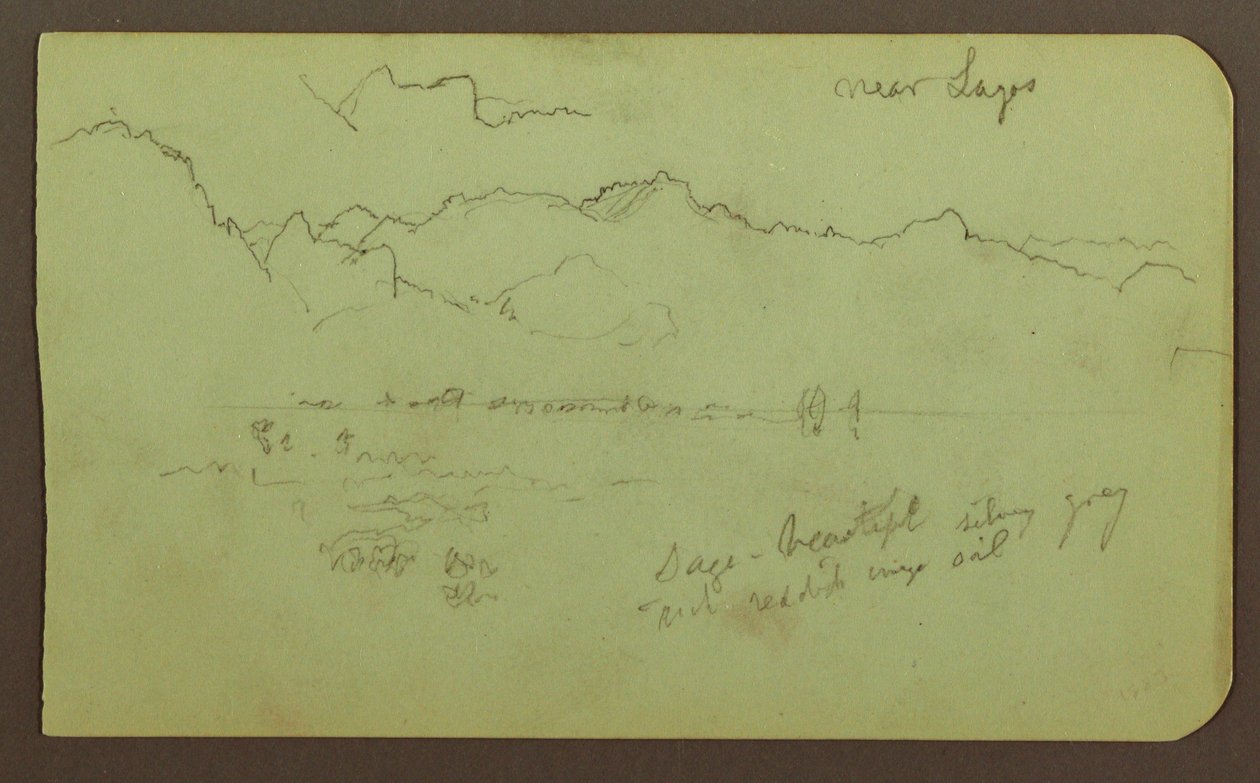 near Lagos
Sage - beautiful silvery grey
rich reddish soil